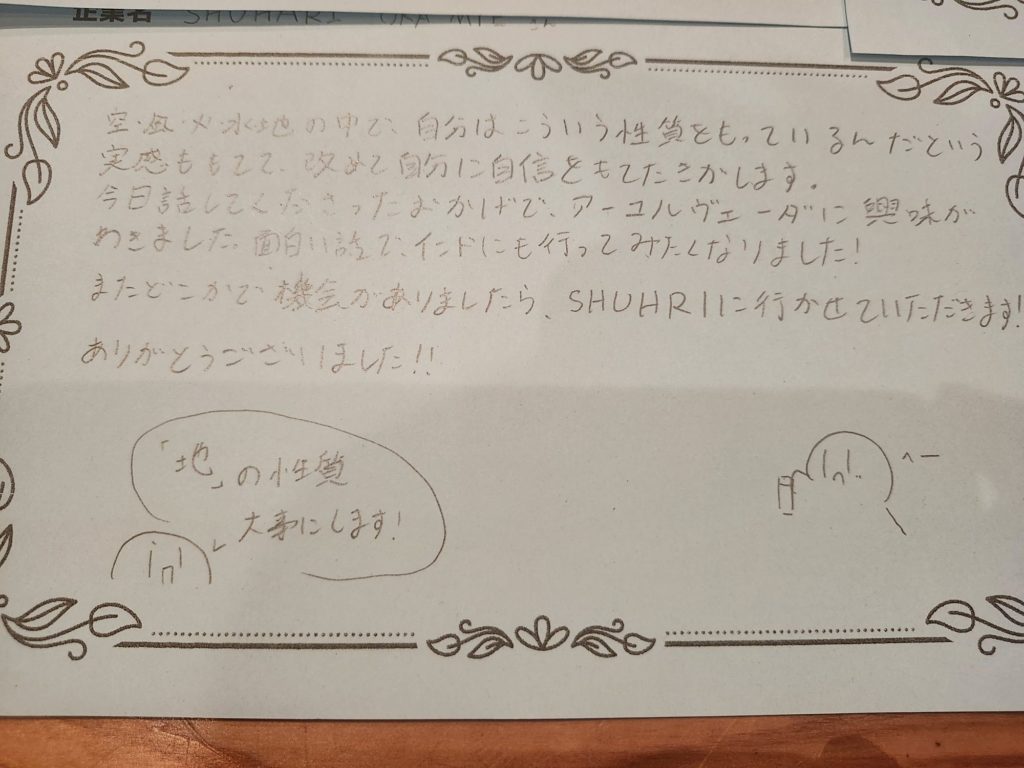 企業名 SHUHARI OKA MIE さん
空・風・火・水・地の中で、自分はこういう性質をもっているんだという
実感ももてて、改めて自分に自信をもてたきがします。
今日話してくださったおかげで、アーユルヴェーダに興味が
わきました。面白い話で、インドにも行ってみたくなりました!
またどこかで機会がありましたら、SHUHRIに行かせていただきます!
ありがとうございました!!
「地」の性質
大事にします!
へー